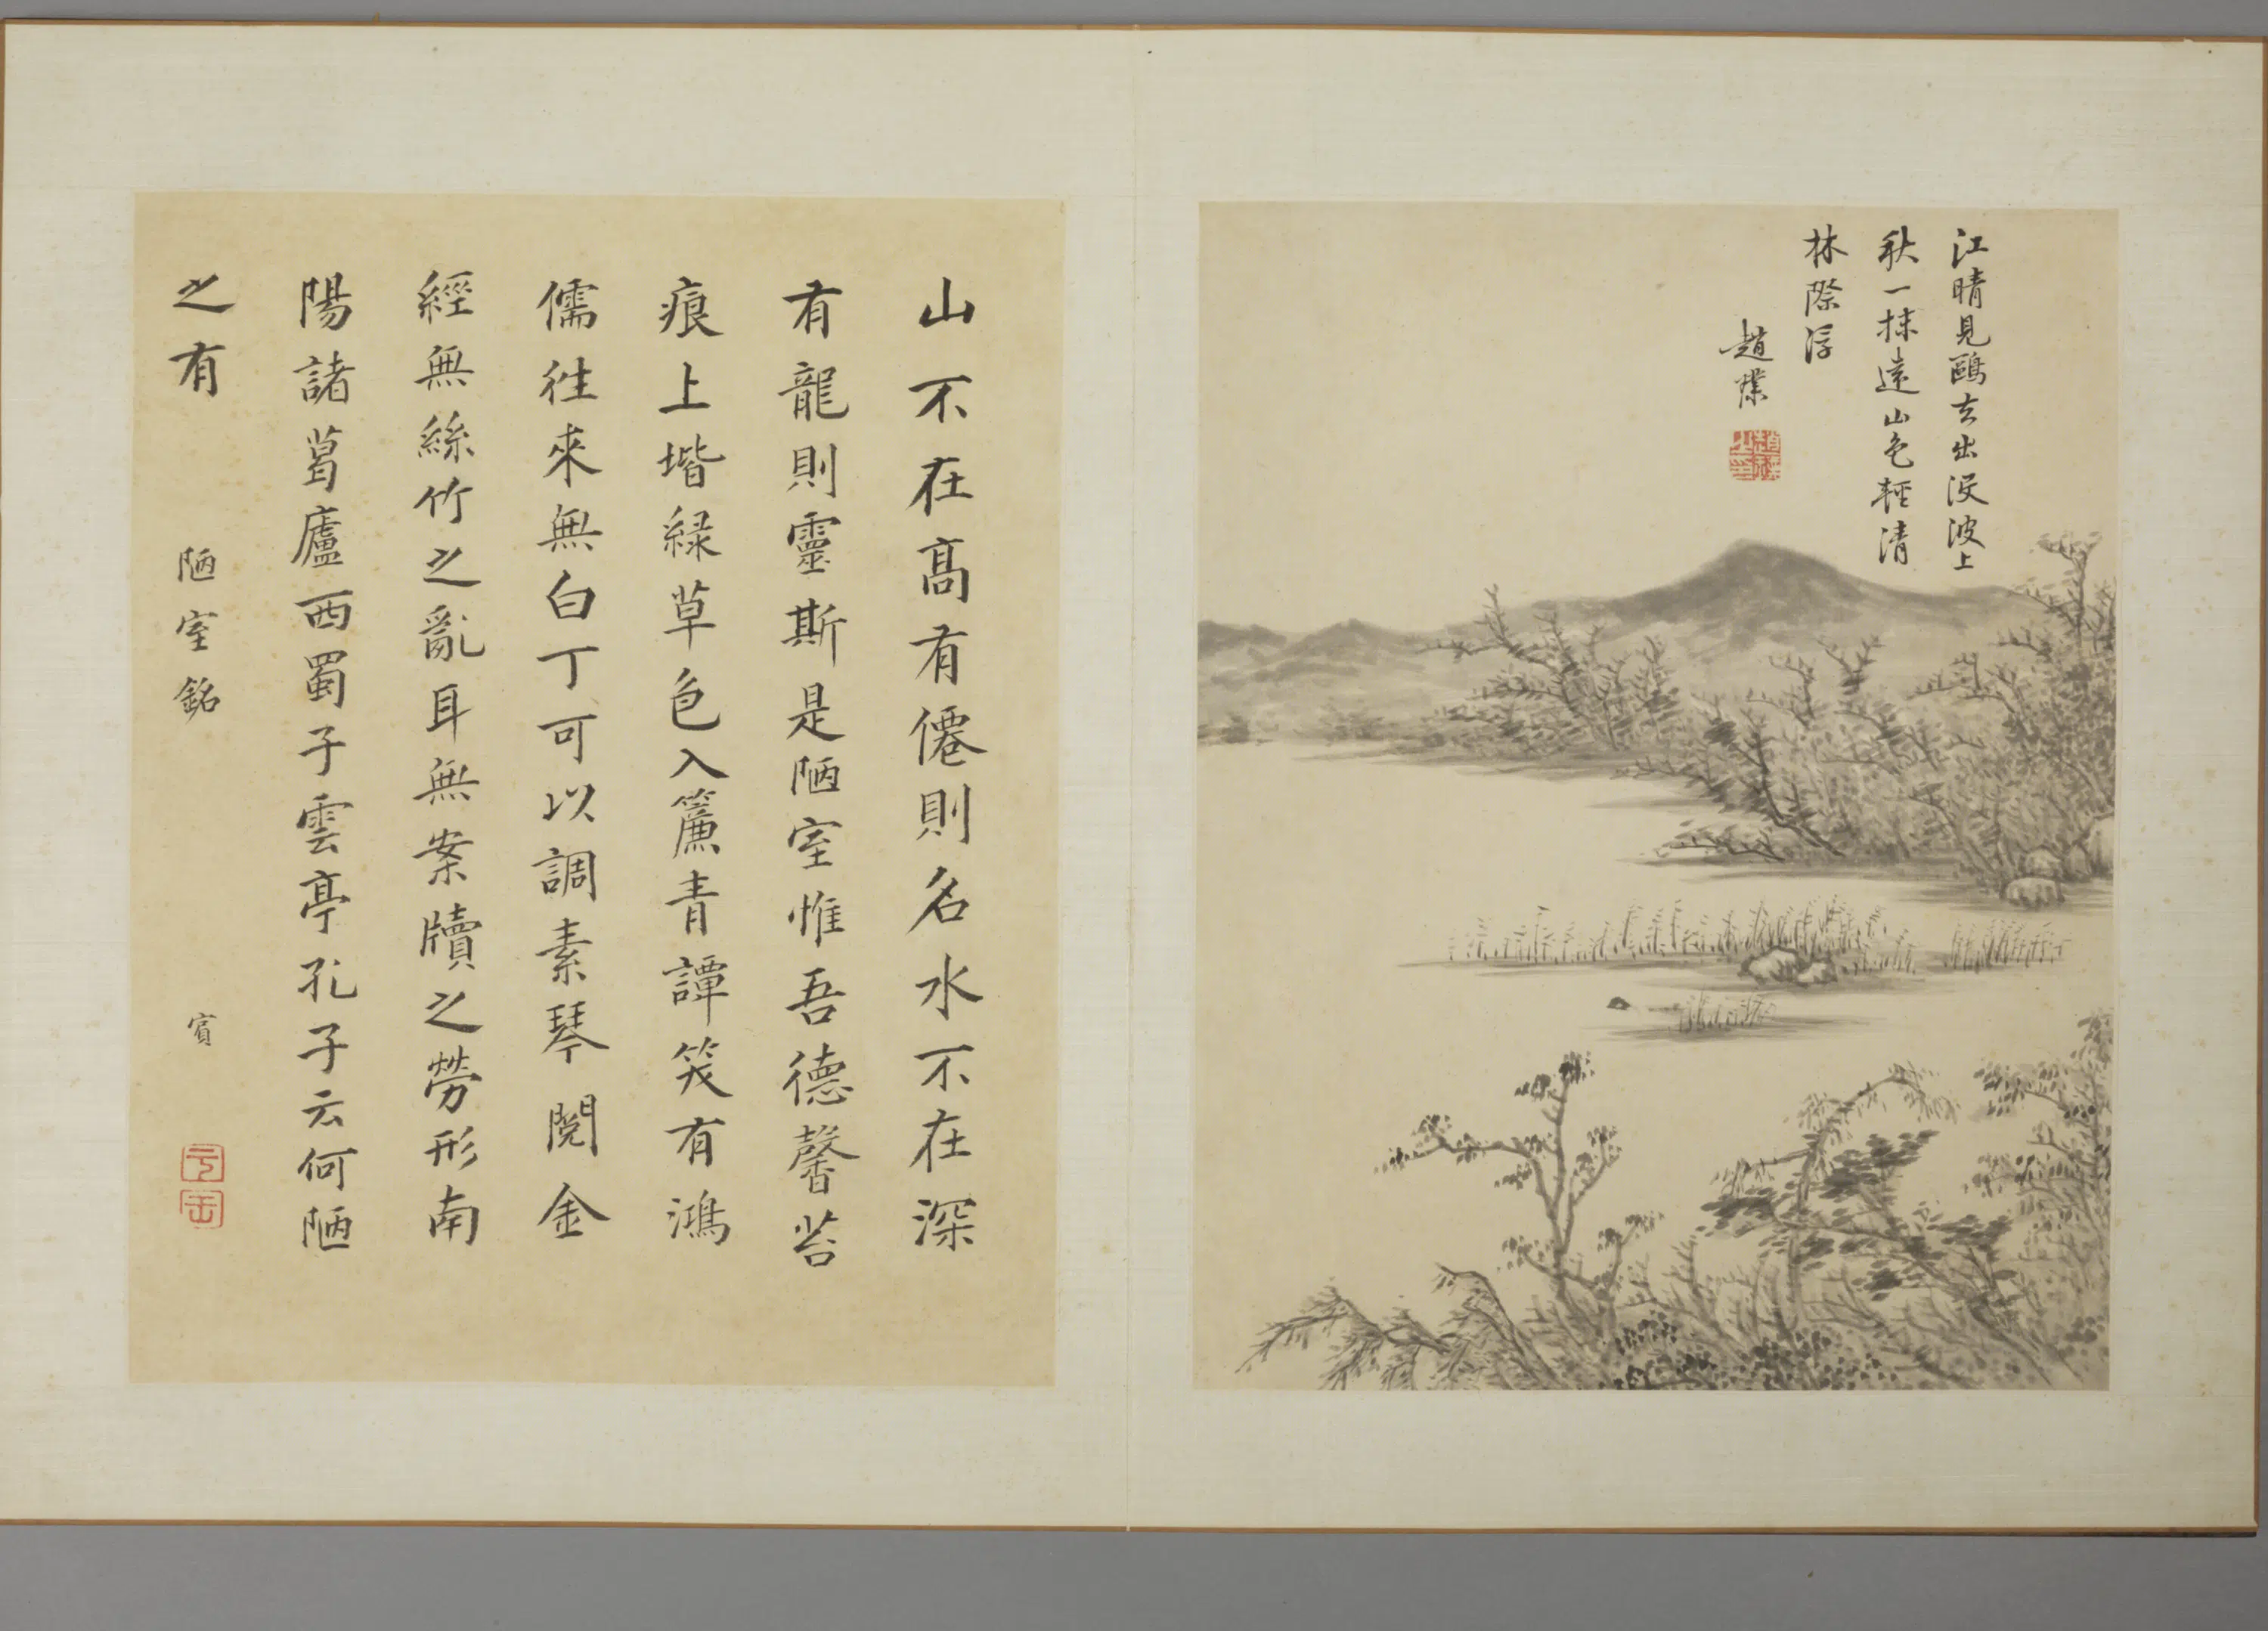 江晴見鷗去出沒波上
秋一抹遠山色輕清
林際浮
趙
山不在髙有僊則名水不在深
有龍則靈斯是陋室惟吾德馨苔
痕上堦緑草色入簾青譚笑有鴻
儒徃來無白丁可以調素琴閲金
經無絲竹之亂耳無案牘之勞形南
陽諸葛廬西蜀子雲亭孔子云何陋
之有
陋室銘
賓